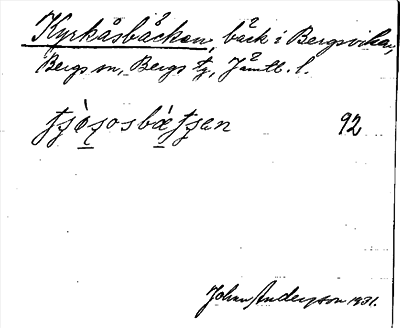 Kyrkåsbäcken, bäck i Bergsviken,
Bergs sn, Bergs tg, Jämtl. l.
92
Johan Anderson 1931.